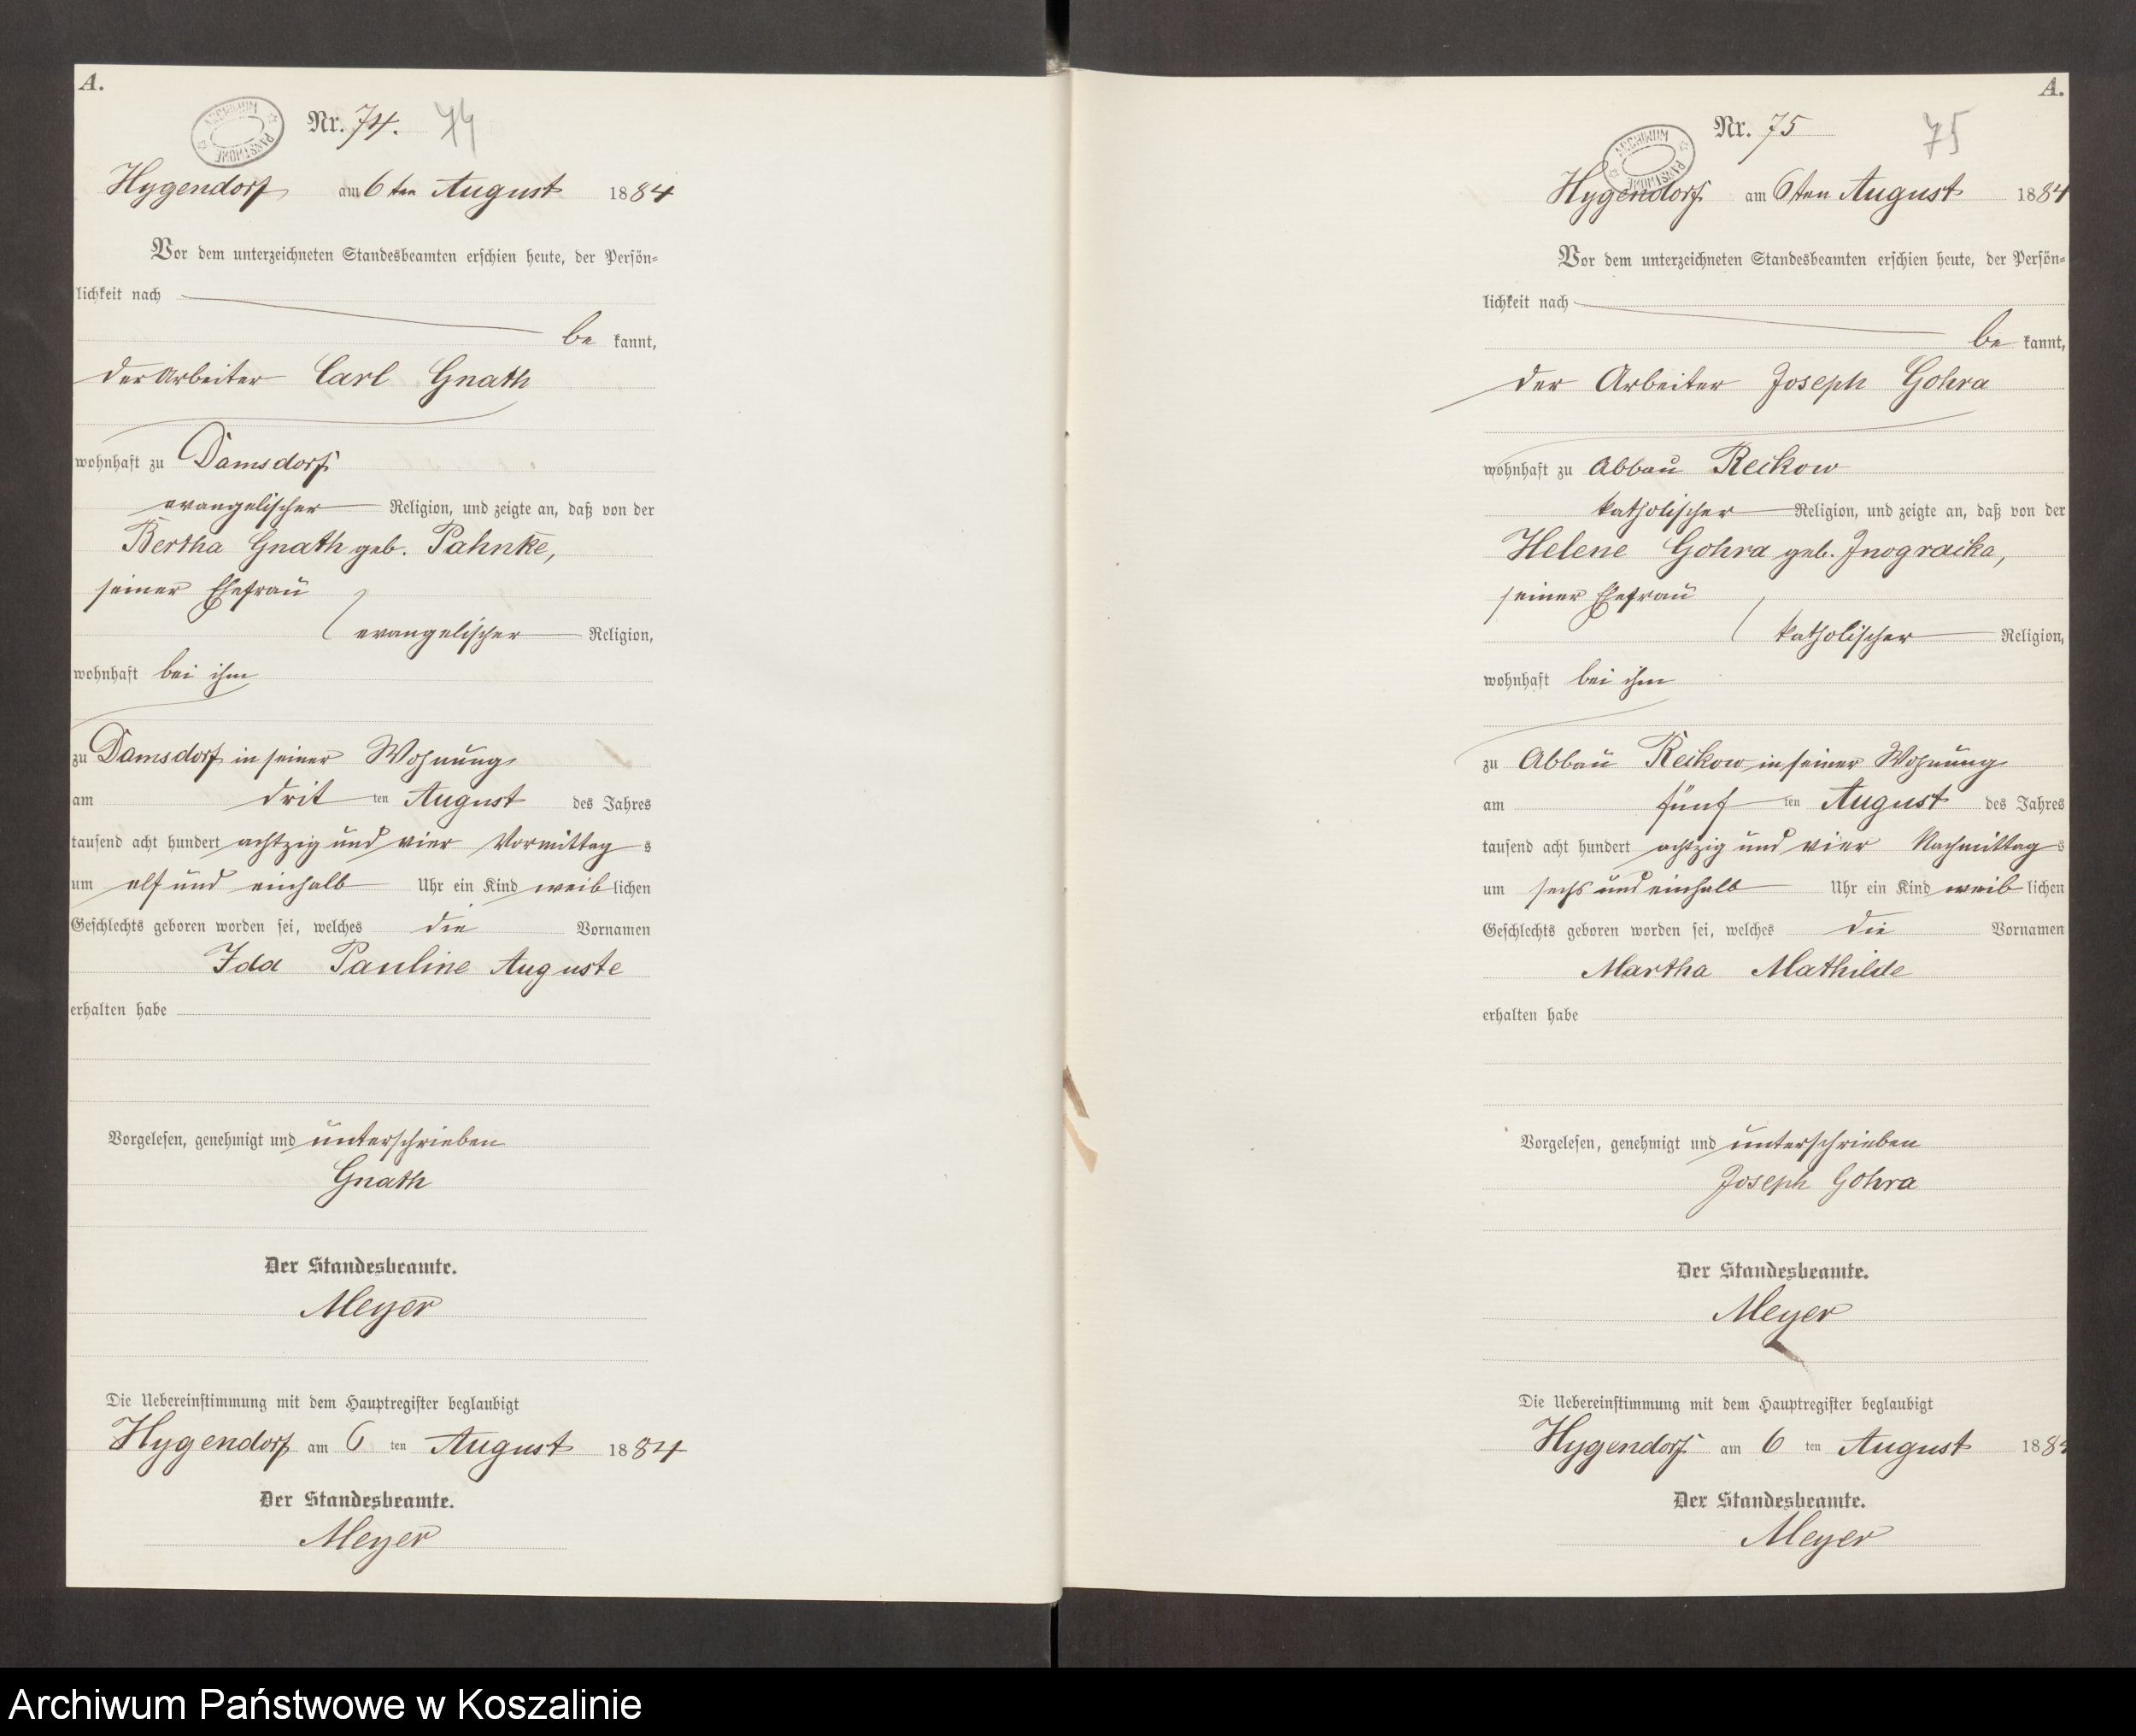 A.
ARCHIWUM PAŃSTWOWE
Nr. 74. 74
Hygendorf am 6ten August 1884
Vor dem unterzeichneten Standesbeamten erschien heute, der Persön-
lichkeit nach
be kannt,
der Arbeiter Carl Gnath
wohnhaft zu Damsdorf
evangelischer Religion, und zeigte an, daß von der
Bertha Gnath geb. Pahnke,
seiner Ehefrau
evangelischer Religion,
wohnhaft bei ihm
zu Damsdorf in seiner Wohnung
am drit ten August des Jahres
tausend acht hundert achtzig und vier Vormittag s
um elf und einhalb Uhr ein Kind weib lichen
Geschlechts geboren worden sei, welches die Vornamen
Ida Pauline Auguste
erhalten habe
Vorgelesen, genehmigt und unterschrieben
Gnath
Der Standesbeamte.
Meyer
Die Uebereinstimmung mit dem Hauptregister beglaubigt
Hygendorf am 6 ten August 1884
Der Standesbeamte.
Meyer
A.
ARCHIWUM PAŃSTWOWE
Nr. 75 75
Hygendorf am 6ten August 1884
Vor dem unterzeichneten Standesbeamten erschien heute, der Persön-
lichkeit nach
be kannt,
der Arbeiter Joseph Gohra
wohnhaft zu Abbau Reckow
katholischer Religion, und zeigte an, daß von der
Helene Gohra geb.
seiner Ehefrau
katholischer Religion,
wohnhaft bei ihm
zu Abbau Reckow in seiner Wohnung
am fünf ten August des Jahres
tausend acht hundert achtzig und vier Nachmittag s
um sechs und einhalb Uhr ein Kind weib lichen
Geschlechts geboren worden sei, welches die Vornamen
Martha Mathilde
erhalten habe
Vorgelesen, genehmigt und unterschrieben
Joseph Gohra
Der Standesbeamte.
Meyer
Die Uebereinstimmung mit dem Hauptregister beglaubigt
Hygendorf am 6 ten August 1884
Der Standesbeamte.
Meyer
Archiwum Państwowe w Koszalinie